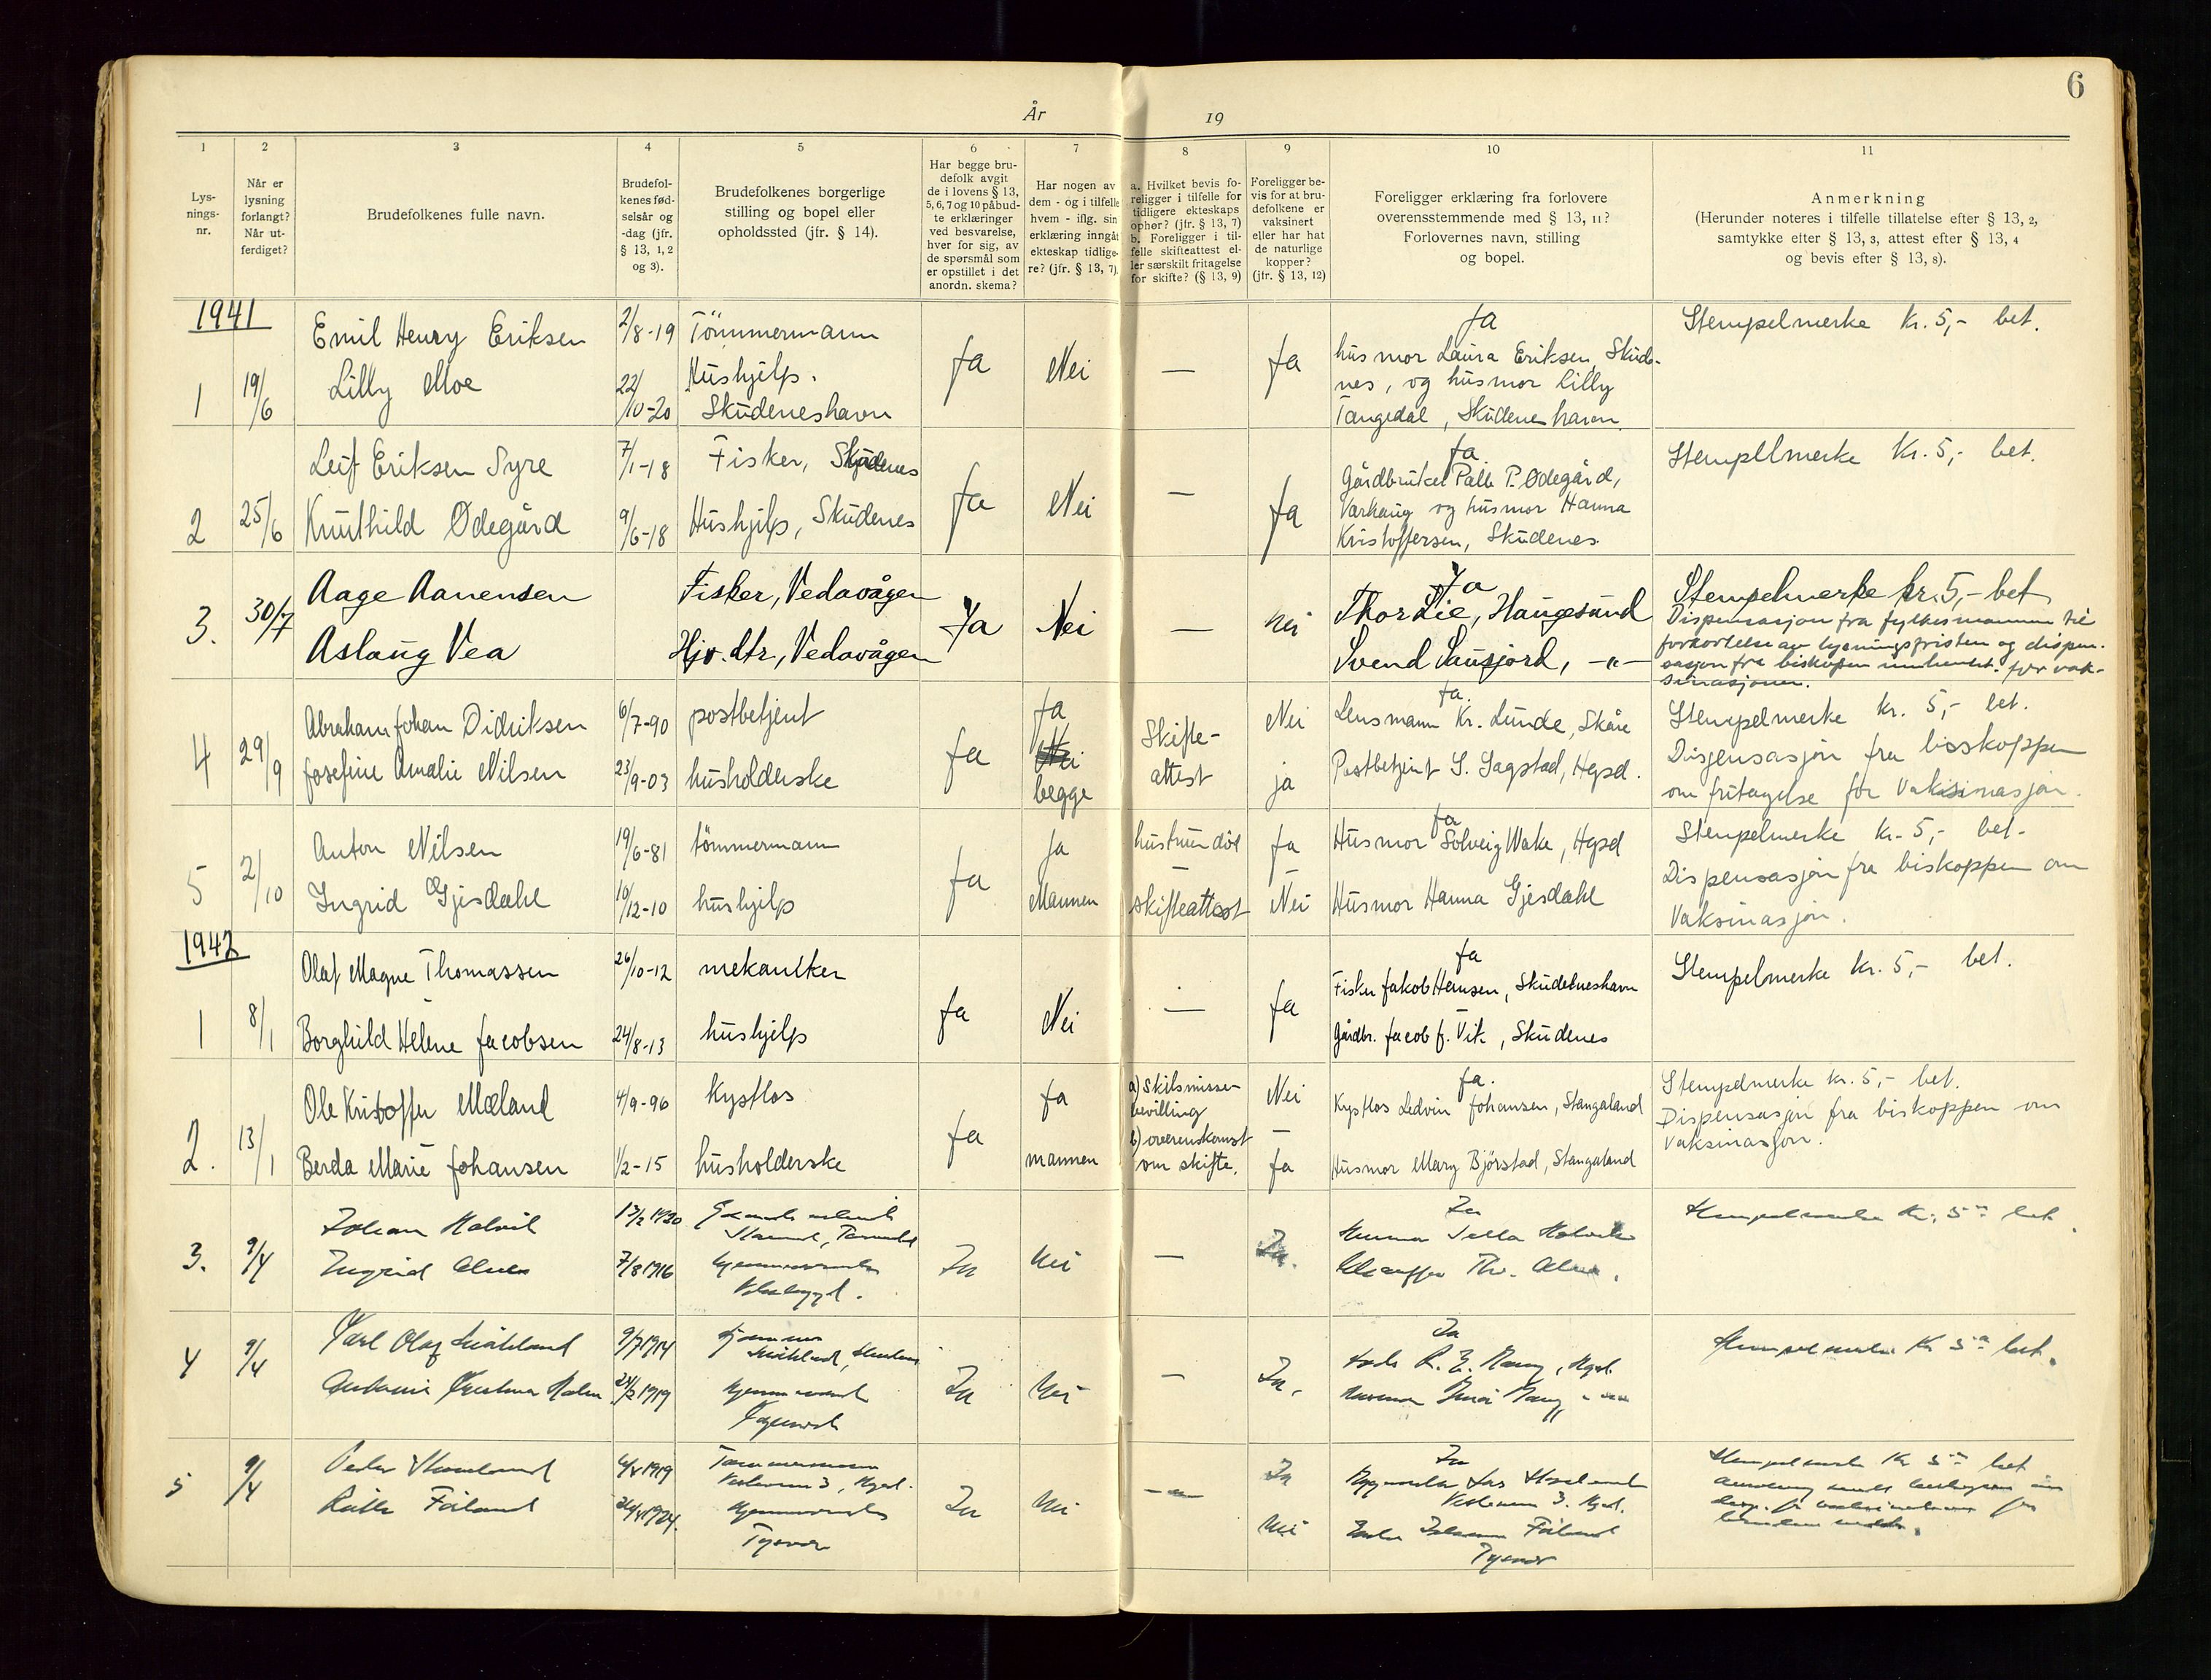 6
År 19
1
Lys-
nings-
nr.
2
Når er
lysning
forlangt?
Når ut-
ferdiget?
3
Brudefolkenes fulle navn.
4
Brudefol-
kenes fød-
selsår og
-dag (jfr.
§ 13, 1, 2
og 3).
5
Brudefolkenes borgerlige
stilling og bopel eller
opholdssted (jfr. § 14).
6
Har begge bru-
defolk avgit
de i lovens § 13,
5, 6, 7 og 10 påbud-
te erklæringer
ved besvarelse,
hver for sig, av
de spørsmål som
er opstillet i det
anordn. skema?
7
Har nogen av
dem - og i tilfelle
hvem - iflg. sin
erklæring inngåt
ekteskap tidlige-
re? (jfr. § 13, 7).
8
a. Hvilket bevis fo-
religger i tilfelle for
tidligere ekteskaps
ophør? (jfr. § 13, 7)
b. Foreligger i til-
felle skifteattest el-
ler særskilt fritagelse
for skifte? (§ 13, 9)
9
Foreligger be-
vis for at bru-
defolkene er
vaksinert
eller har hat
de naturlige
kopper?
(jfr. § 13, 12)
10
Foreligger erklæring fra forlovere
overensstemmende med § 13, 11?
Forlovernes navn, stilling
og bopel.
11
Anmerkning
(Herunder noteres i tilfelle tillatelse efter § 13, 2,
samtykke efter § 13, 3, attest efter § 13, 4
og bevis efter § 13, 8).
1941
1
19/6
Emil Henry Eriksen
Lilly Moe
2/8-19
22/10-20
Tömmermann
Hushjelp.
Skudeneshavn
Ja
Nei
—
Ja
Ja
husmor Laura Eriksen, Skude-
nes, og husmor Lilly
Tangedal, Skudeneshavn.
Stempelmerke kr. 5,- bet.
2
25/6
Leif Eriksen Syre
Knuthild Ødegård
7/1-18
9/6-18
Fisker, Skudenes
Hushjelp, Skudenes
Ja
Nei
—
Ja
Ja.
Gårdbruker Palle P. Ødegård,
Varhaug og husmor Hanna
Kristoffersen, Skudenes.
Stempllmerke Kr. 5,- bet.
3.
30/7
Aage Aanensen
Aslaug Vea
Fisker, Vedavågen
Hjv. dtr, Vedavågen
Ja
Nei
—
Nei
Ja
Thor Lie, Haugesund
Svend Sausjord, -"-
Stempelmerke kr. 5,- bet
Dispensasjon fra fylkesmannen til
forkortelse av lysningsfristen og dispen-
sasjon fra biskopen innhentet for vak-
sinasjonen.
4
29/9
Abraham Johan Didriksen
Josefine Amalie Nilsen
6/7-90
23/9-03
postbetjent
husholderske
Ja
Ja
Nei
begge
Skifte-
attest
Nei
ja
Ja.
Lensmann Kr. Lunde, Skåre
Postbetjent S. Sagstad, Hgsd.
Stempelmerke kr. 5,- bet.
Dispensasjon fra bisskoppen
om fritagelse for vaksinasjon.
5
2/10
Anton Nilsen
Ingrid Gjesdahl
19/6-81
10/12-10
tömmermann
hushjelp
Ja
Ja
Mannen
hustruen död
—
skifteattest
Ja
—
Nei
Ja
Husmor Solveig Wake, Hgsd
Husmor Hanna Gjesdahl
Stempelmerke kr. 5,- bet.
Dispensasjon fra biskoppen om
Vaksinasjon.
1942
1
8/1
Olaf Magne Thomassen
Borghild Helene Jacobsen
26/10-12
24/8-13
mekaniker
hushjelp
Ja
Nei
—
Ja
Ja
Fisker Jakob Hansen, Skudeneshavn
Gårdbr. Jacob J. Vik, Skudenes
Stempelmerke kr. 5,- bet.
2.
13/1
Ole Kristoffer Mæland
Berda Marie Johansen
4/9-96
1/2-15
kystlos
husholderske
Ja
Ja
mannen
a) Skilsmisse-
bevilling
b) overenskomst
om skifte.
Nei
—
Ja
Ja.
Kystlos Ledvin Johansen, Stangaland
Husmor Mary Björstad, Stangaland
Stempelmerke kr. 5,- bet.
Dispensasjon fra biskoppen om
Vaksinasjon.
3.
9/4
Johan
Ingrid
7/8 1916
Ja
Nei
—
Ja.
Ja
Stempelmerke Kr. 5,- bet
4
9/4
Karl Olaf
9/7 1914
Ja
Nei
—
Ja.
Ja
Stempelmerke Kr 5,- bet.
5
9/4
Peder
Tømmermann
Tysvær
Ja
Nei
Ja
Nei
Ja
Tysvær
Stempelmerke Kr 5,- bet